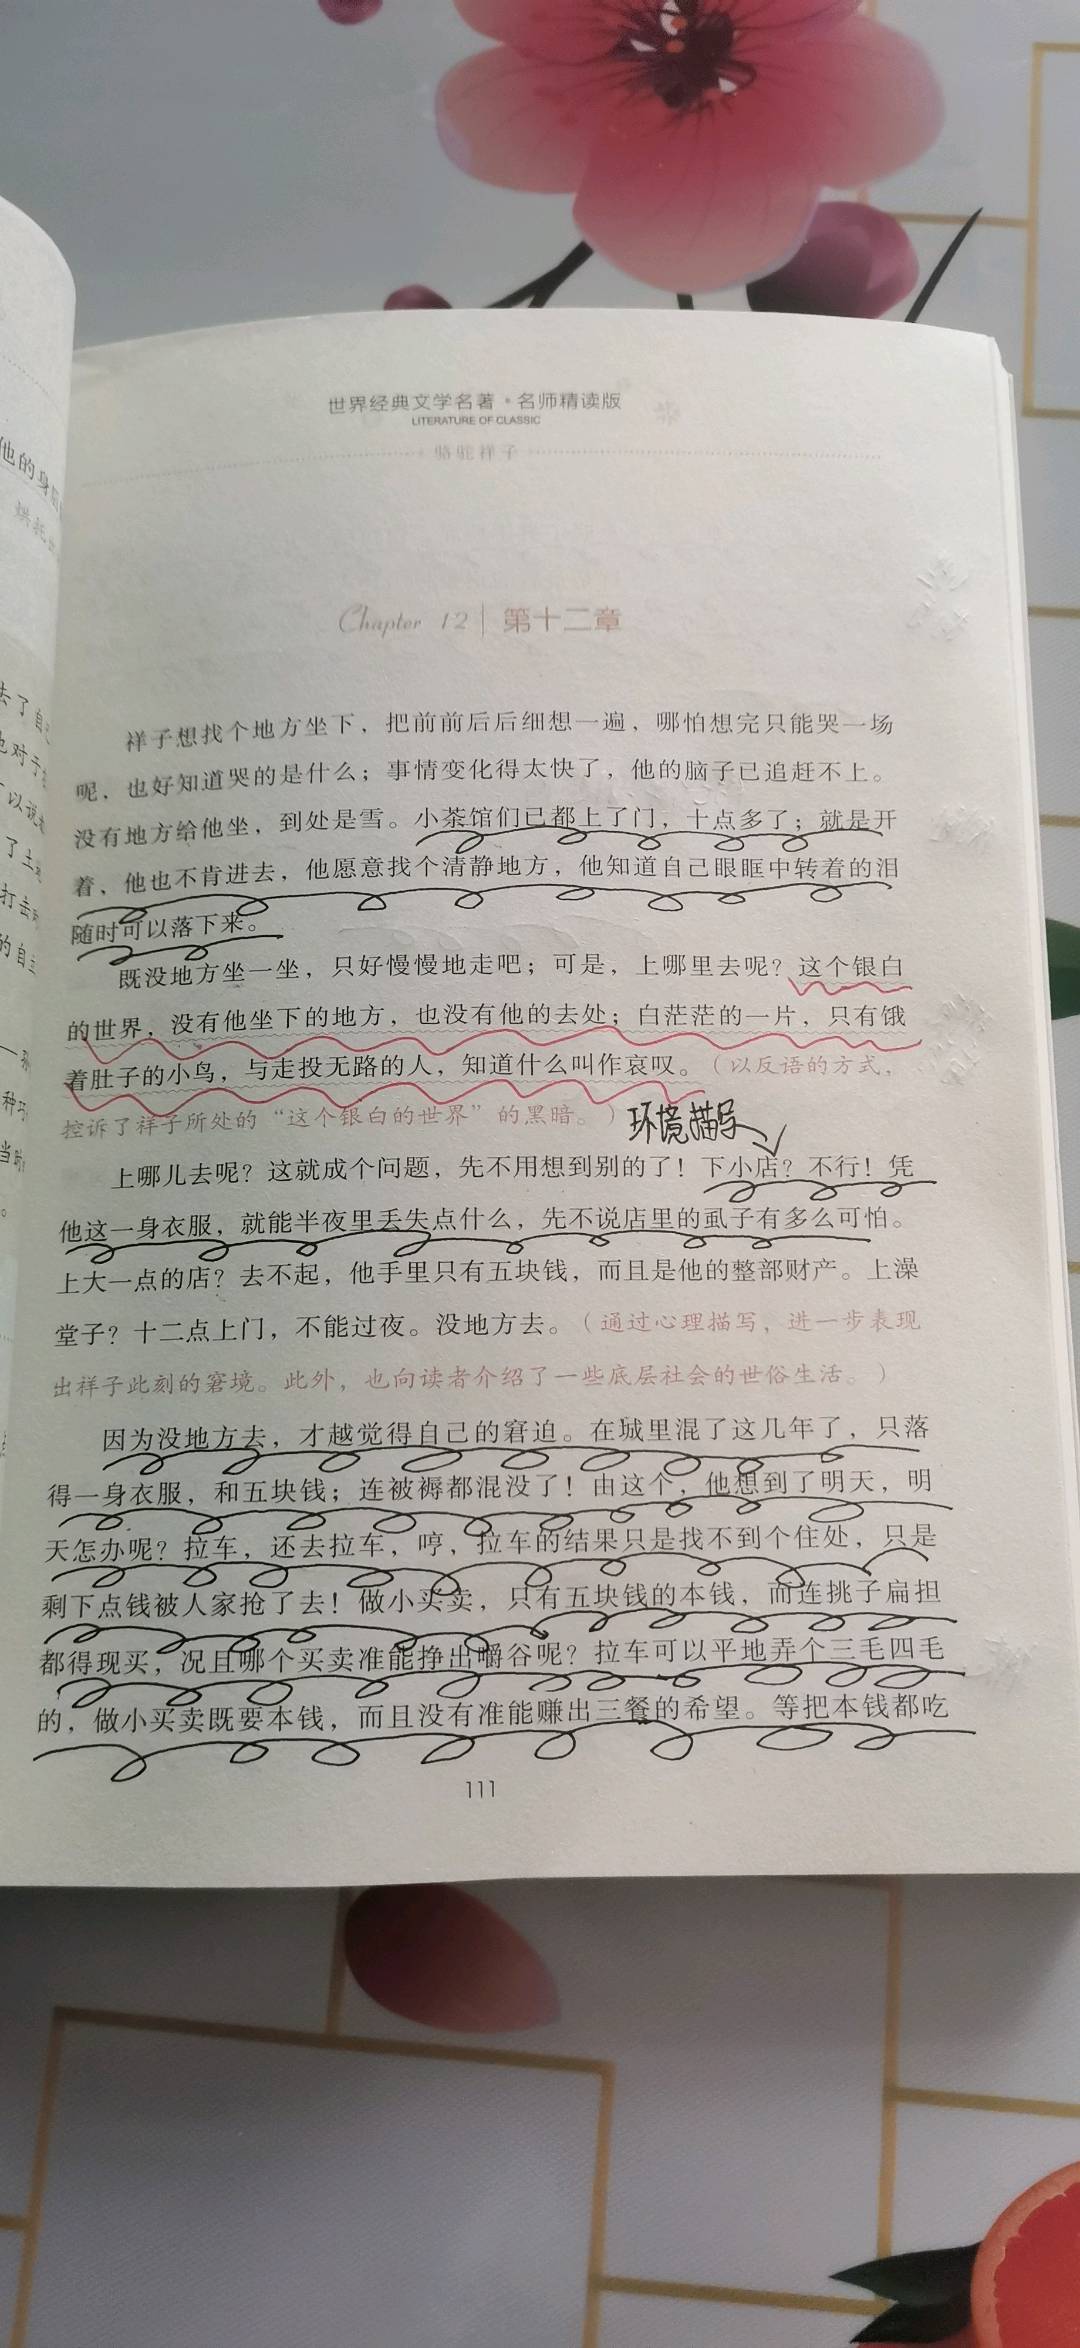 他的身
烘托
去了自
也对于
以说
了土
打击
的自主
种巧
当时
。
世界经典文学名著·名师精读版
LITERATURE OF CLASSIC
骆驼祥子
Chapter 12 | 第十二章
祥子想找个地方坐下，把前前后后细想一遍，哪怕想完只能哭一场
呢，也好知道哭的是什么；事情变化得太快了，他的脑子已追赶不上。
没有地方给他坐，到处是雪。小茶馆们已都上了门，十点多了；就是开
着，他也不肯进去，他愿意找个清静地方，他知道自己眼眶中转着的泪
随时可以落下来。
既没地方坐一坐，只好慢慢地走吧；可是，上哪里去呢？这个银白
的世界，没有他坐下的地方，也没有他的去处；白茫茫的一片，只有饿
着肚子的小鸟，与走投无路的人，知道什么叫作哀叹。（以反语的方式，
控诉了祥子所处的“这个银白的世界”的黑暗。）环境描写
上哪儿去呢？这就成个问题，先不用想到别的了！下小店？不行！凭
他这一身衣服，就能半夜里丢失点什么，先不说店里的虱子有多么可怕。
上大一点的店？去不起，他手里只有五块钱，而且是他的整部财产。上澡
堂子？十二点上门，不能过夜。没地方去。（通过心理描写，进一步表现
出祥子此刻的窘境。此外，也向读者介绍了一些底层社会的世俗生活。）
因为没地方去，才越觉得自己的窘迫。在城里混了这几年了，只落
得一身衣服，和五块钱；连被褥都混没了！由这个，他想到了明天，明
天怎办呢？拉车，还去拉车，哼，拉车的结果只是找不到个住处，只是
剩下点钱被人家抢了去！做小买卖，只有五块钱的本钱，而连挑子扁担
都得现买，况且哪个买卖准能挣出嚼谷呢？拉车可以平地弄个三毛四毛
的，做小买卖既要本钱，而且没有准能赚出三餐的希望。等把本钱都吃
111